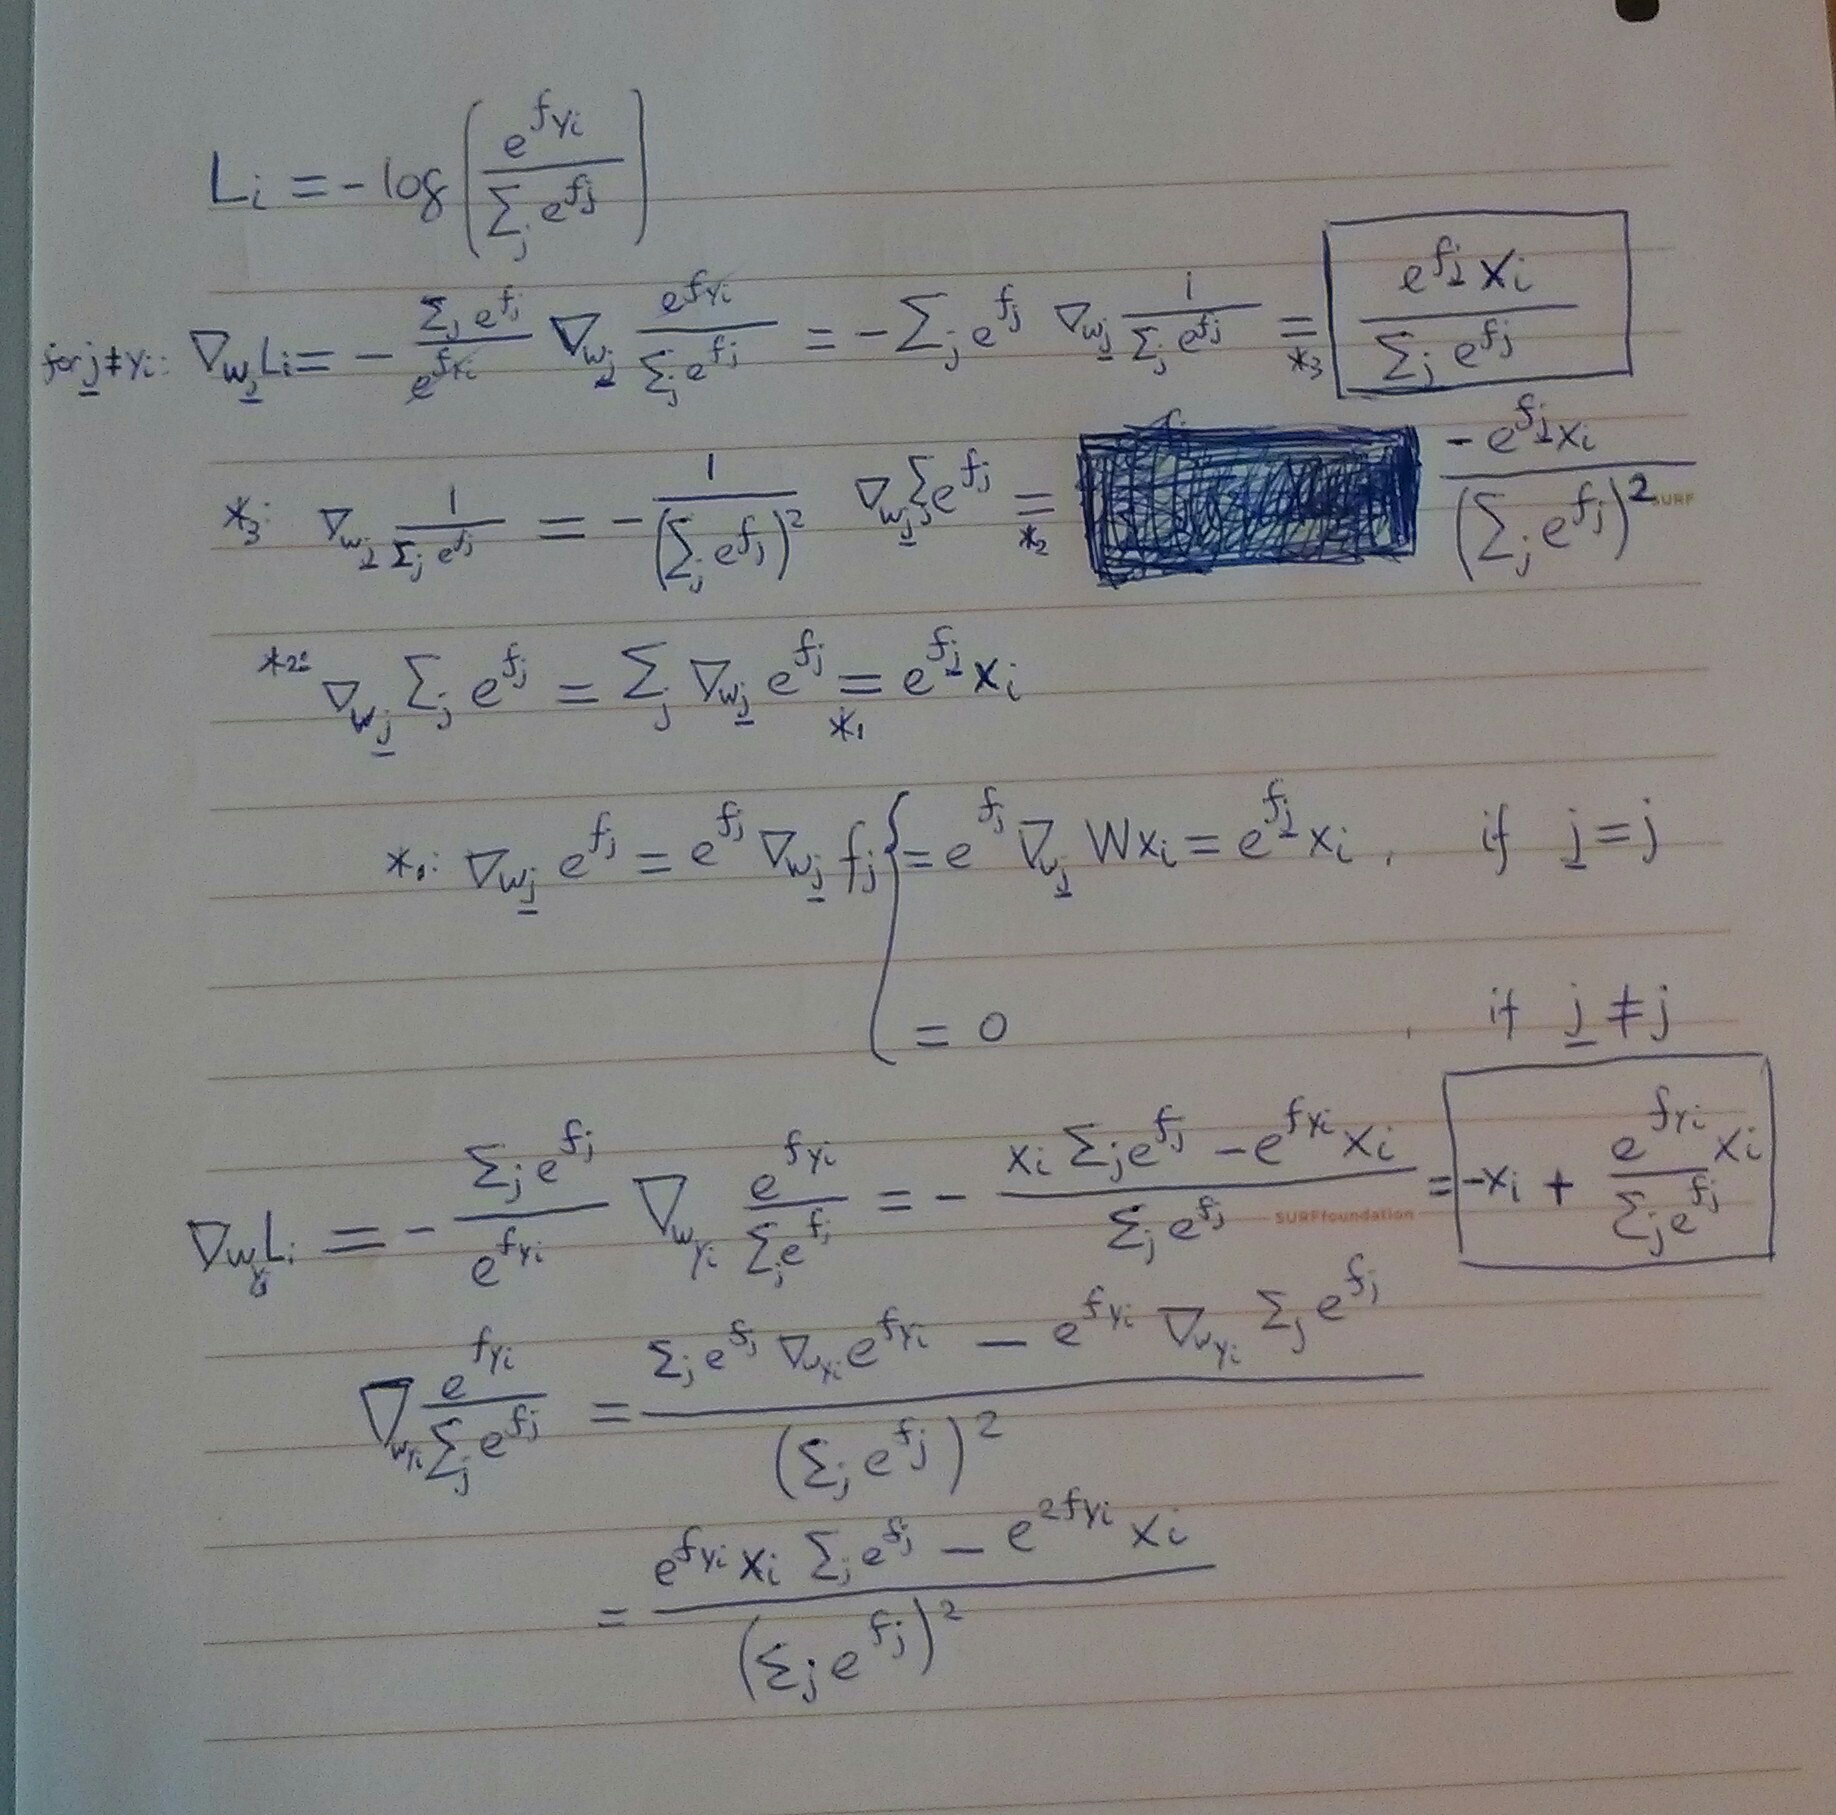 L_i = -log( e^{f_{y_i}} / Σ_j e^{f_j} )
for j̲ ≠ y_i: ∇_{w_j̲} L_i = - (Σ_j e^{f_j} / e^{f_{y_i}}) ∇_{w_j̲} (e^{f_{y_i}} / Σ_j e^{f_j}) = -Σ_j e^{f_j} ∇_{w_j̲} (1 / Σ_j e^{f_j}) =_{*3} e^{f_j̲} x_i / Σ_j e^{f_j}
*3: ∇_{w_j̲} (1 / Σ_j e^{f_j}) = - (1 / (Σ_j e^{f_j})^2) ∇_{w_j̲} Σ_j e^{f_j} =_{*2} -e^{f_j̲} x_i / (Σ_j e^{f_j})^2
SURF
*2: ∇_{w_j̲} Σ_j e^{f_j} = Σ_j ∇_{w_j̲} e^{f_j} =_{*1} e^{f_j̲} x_i
*1: ∇_{w_j̲} e^{f_j} = e^{f_j} ∇_{w_j̲} f_j { = e^{f_j} ∇_{w_j̲} W x_i = e^{f_j̲} x_i , if j̲ = j
= 0 , if j̲ ≠ j
∇_{w_{y_i}} L_i = - (Σ_j e^{f_j} / e^{f_{y_i}}) ∇_{w_{y_i}} (e^{f_{y_i}} / Σ_j e^{f_j}) = - (x_i Σ_j e^{f_j} - e^{f_{y_i}} x_i) / Σ_j e^{f_j} = -x_i + (e^{f_{y_i}} / Σ_j e^{f_j}) x_i
SURFfoundation
∇_{w_{y_i}} (e^{f_{y_i}} / Σ_j e^{f_j}) = (Σ_j e^{f_j} ∇_{w_{y_i}} e^{f_{y_i}} - e^{f_{y_i}} ∇_{w_{y_i}} Σ_j e^{f_j}) / (Σ_j e^{f_j})^2
= (e^{f_{y_i}} x_i Σ_j e^{f_j} - e^{2f_{y_i}} x_i) / (Σ_j e^{f_j})^2